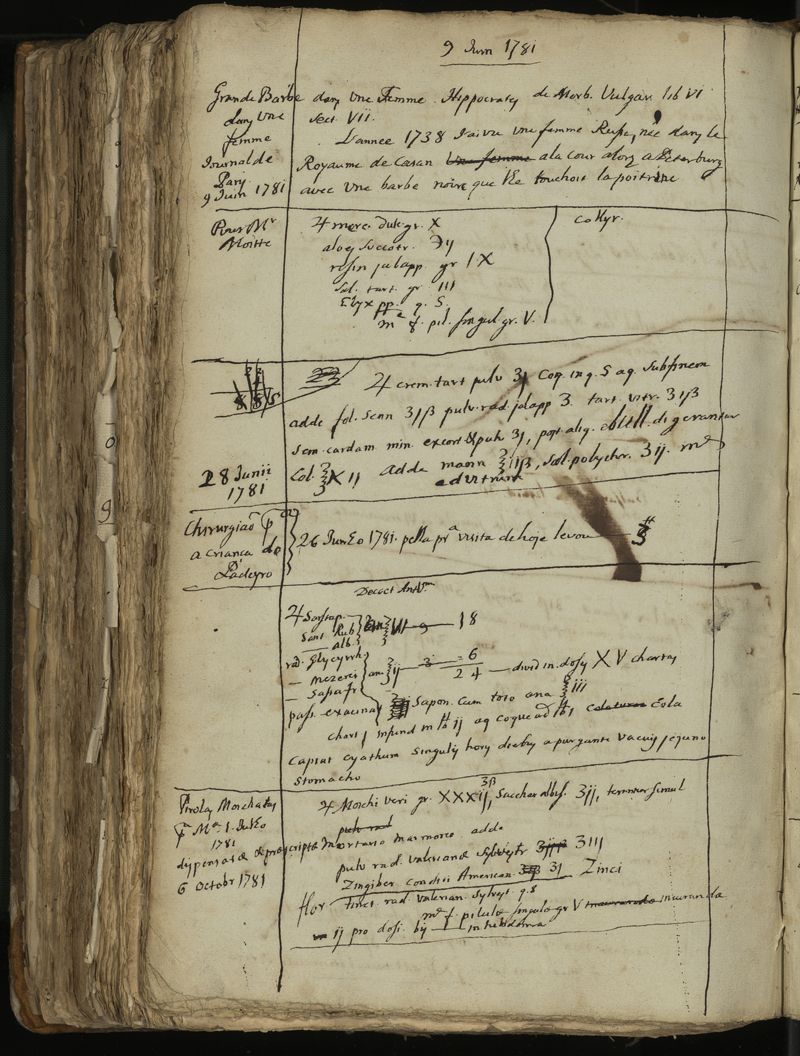 9 Juin 1781
Grande Barbe dans Une Femme. Hippocrates de Morb. Vulgar. lib VI
dans Une Sect. VII.
femme L'année 1738 J'ai vu Une femme Russe, née dans le
Journal de Royaume de Casan Une femme a la cour alors a Peterburg
Paris avec Une barbe noire que lle touchoit la poitrine
9 Juin 1781
Pour Mr
Moitte
♃ merc. dulc. gr. X
aloes succotr. ʒij
resin jalapp. gr IX
sal. tart. gr. III
q. S.
me f. pil. singul. gr. V.
Collyr.
♃ crem. tart pulv ʒj Coq. in q. S aq. Subfinem
adde fol. Senn ʒiβ pulv. rad. jalapp ʒ tart. vitr. ʒiβ
Sem. cardam. min. excort & pulv ʒj, post aliq. digerantur
Col. ℥XII Adde mann ℥iiβ, Sal. polychr. ʒij. me
ad Vitrum
28 Junii
1781
Chirurgiaõ pa
a criança do
Padeyro
26 Junho 1781. pella pra visita de hoje levou
Decoct Antiv.
♃ Sarsap.
Sant Rub
— alb. 9 — 18
rad. Glycyrrh.
— Mezerei ana ʒij — 3 — = 6
— Sassafr 24 — divid in dosis XV chartas
pass. exacinat Sapon. Cum toto ana ℥iii
chart j infund in ℔ ij aq coque ad ℔j Colatura Cola
Capiat Cyathum Singulis horis diebus a purgante vacuis jejuno
Stomacho
Pirolas Moschadas
pa Ma 1. Julho
1781
dispensatæ & præscriptæ
6 Octobr 1781
♃ Moschi veri gr. XXXij, Sacchar albiss. ʒij, terantur simul
ʒβ
pulv rad
In Mortario marmoreo. adde
pulv rad. Valerianæ Sylvestr. ʒIII
Zingiber Conditi American. ʒj Zinci
flor Tinct. rad. Valerian. Sylvest. q. s
me f. pilulæ singulæ gr V inauranda
ij pro dosi. bis in hebdoma